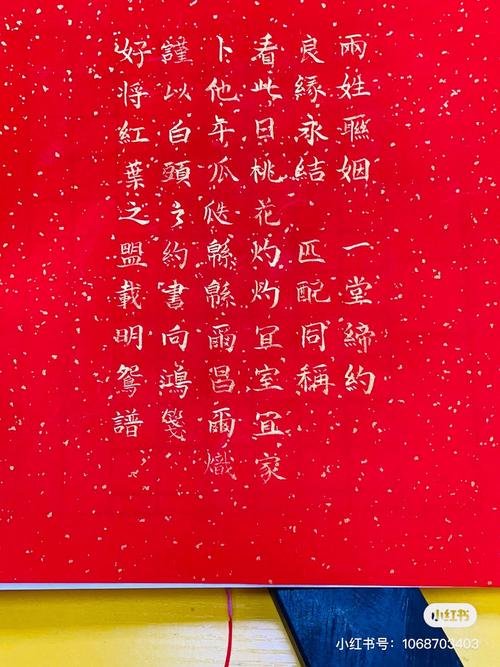 兩姓聯姻 一堂締約
良緣永結 匹配同稱
看此日桃花灼灼宜室宜家
卜他年瓜瓞緜緜爾昌爾熾
謹以白頭之約書向鴻箋
好將紅葉之盟載明鴛譜
小红书
小红书号：1068703403